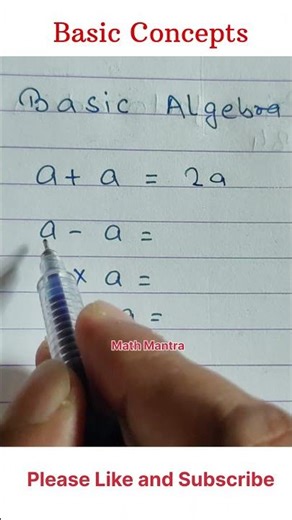 Basic Concepts
Basic Algebra
a + a = 2a
a - a =
× a =
=
Math Mantra
Please Like and Subscribe